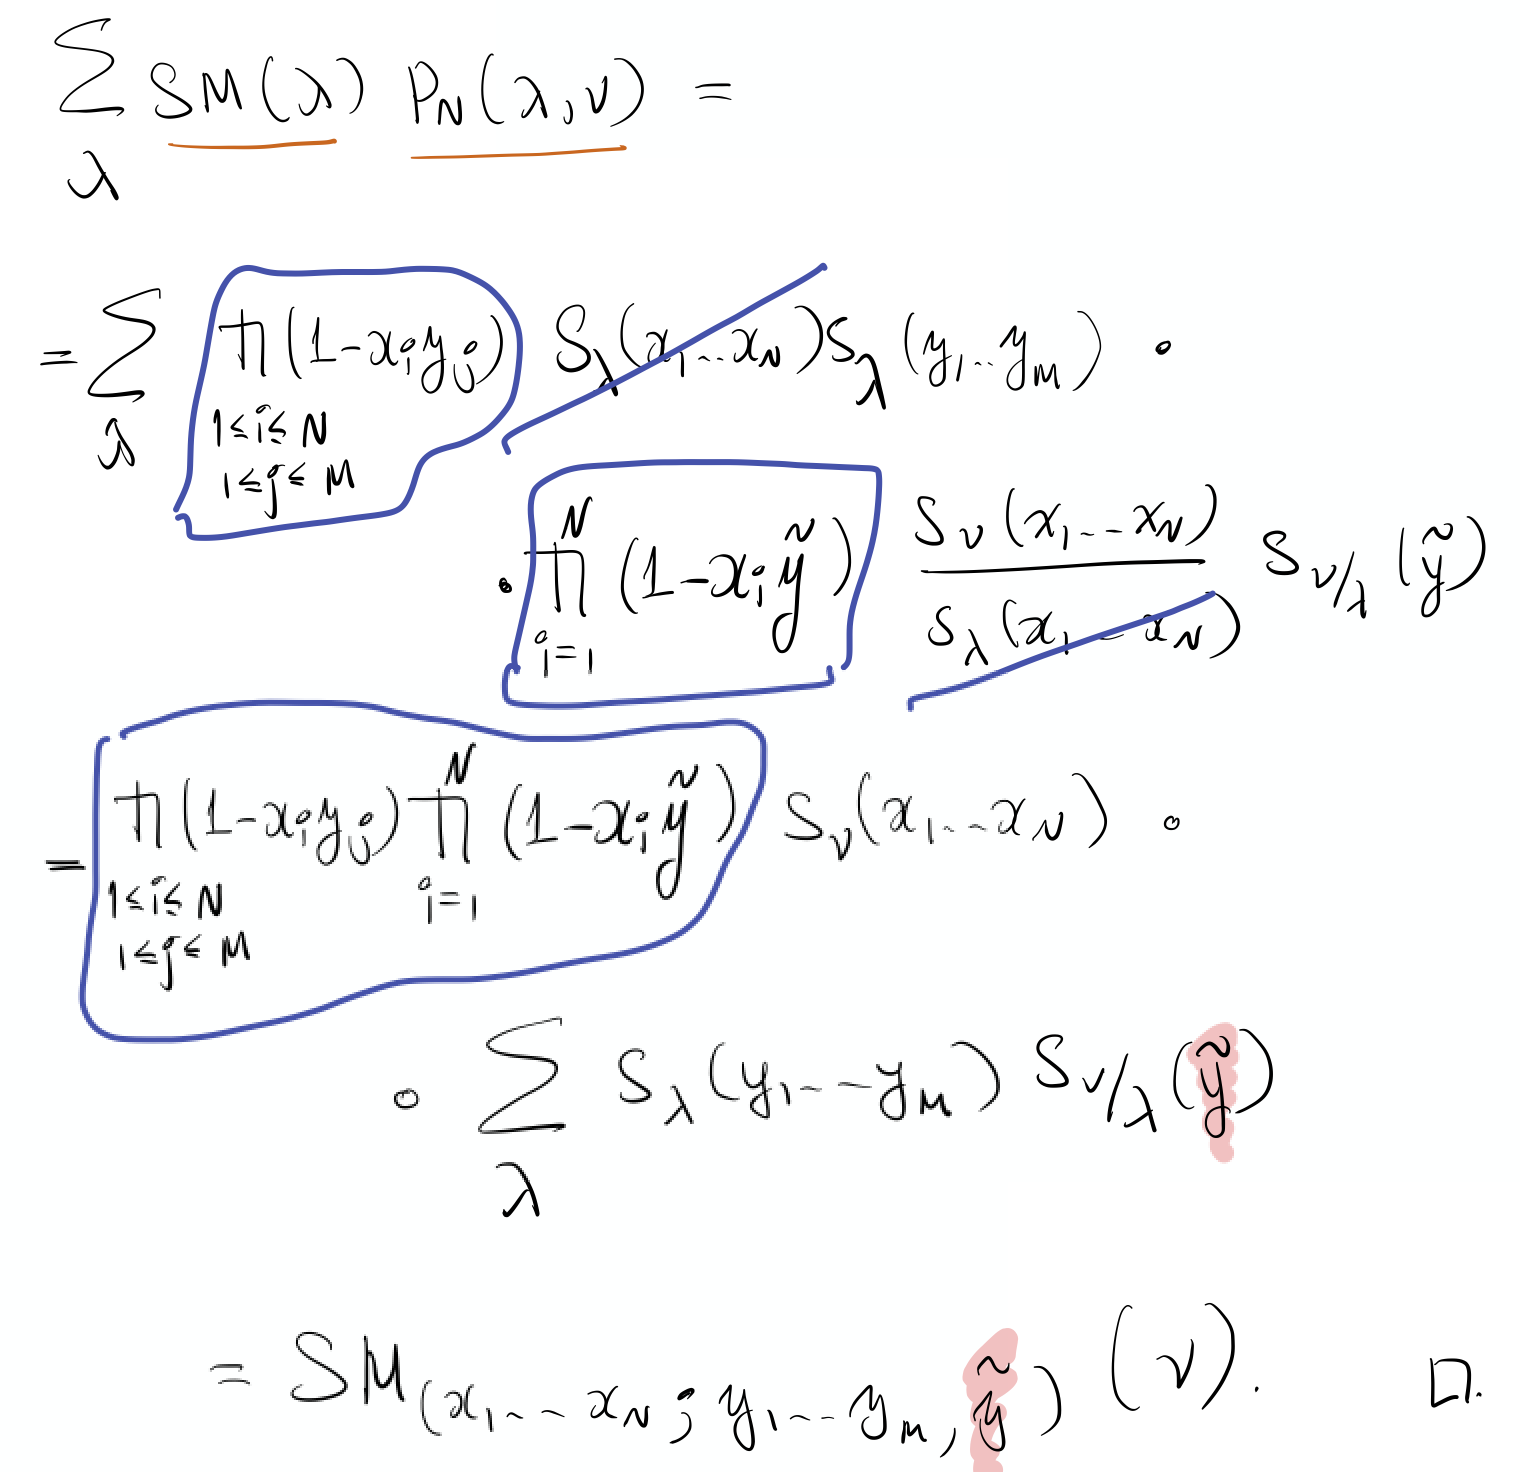 ∑_λ SM(λ) P_N(λ,ν) =
= ∑_λ ∏_{1≤i≤N, 1≤j≤M} (1-x_i y_j) S_λ(x_1...x_N) S_λ(y_1...y_M) ·
· ∏_{i=1}^{N} (1-x_i ỹ) S_ν(x_1...x_N) / S_λ(x_1...x_N) S_{ν/λ}(ỹ)
= ∏_{1≤i≤N, 1≤j≤M} (1-x_i y_j) ∏_{i=1}^{N} (1-x_i ỹ) S_ν(x_1...x_N) ∘
∘ ∑_λ S_λ(y_1...y_M) S_{ν/λ}(ỹ)
= SM_{(x_1...x_N; y_1...y_M, ỹ)} (ν). □.